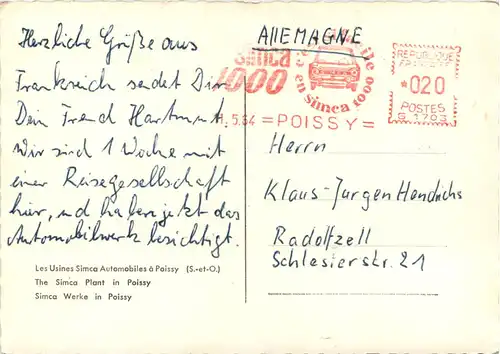 Herzliche Grüße aus
Frankreich sendet Dir
Dein Freud Hartmut
Wir sind 1 Woche mit
einer Reisegesellschaft
hier, und haben jetzt das
Automobilwerk besichtigt.
Les Usines Simca Automobiles à Poissy (S.-et-O.)
The Simca Plant in Poissy
Simca Werke in Poissy
AllEMAGNE
Simca
1000
en Simca 1000
.5.64 =POISSY=
REPUBLIQUE
FRANÇAISE
*020
POSTES
G.1703
Herrn
Klaus-Jurgen Hendrichs
Radolfzell
Schlesierstr. 21